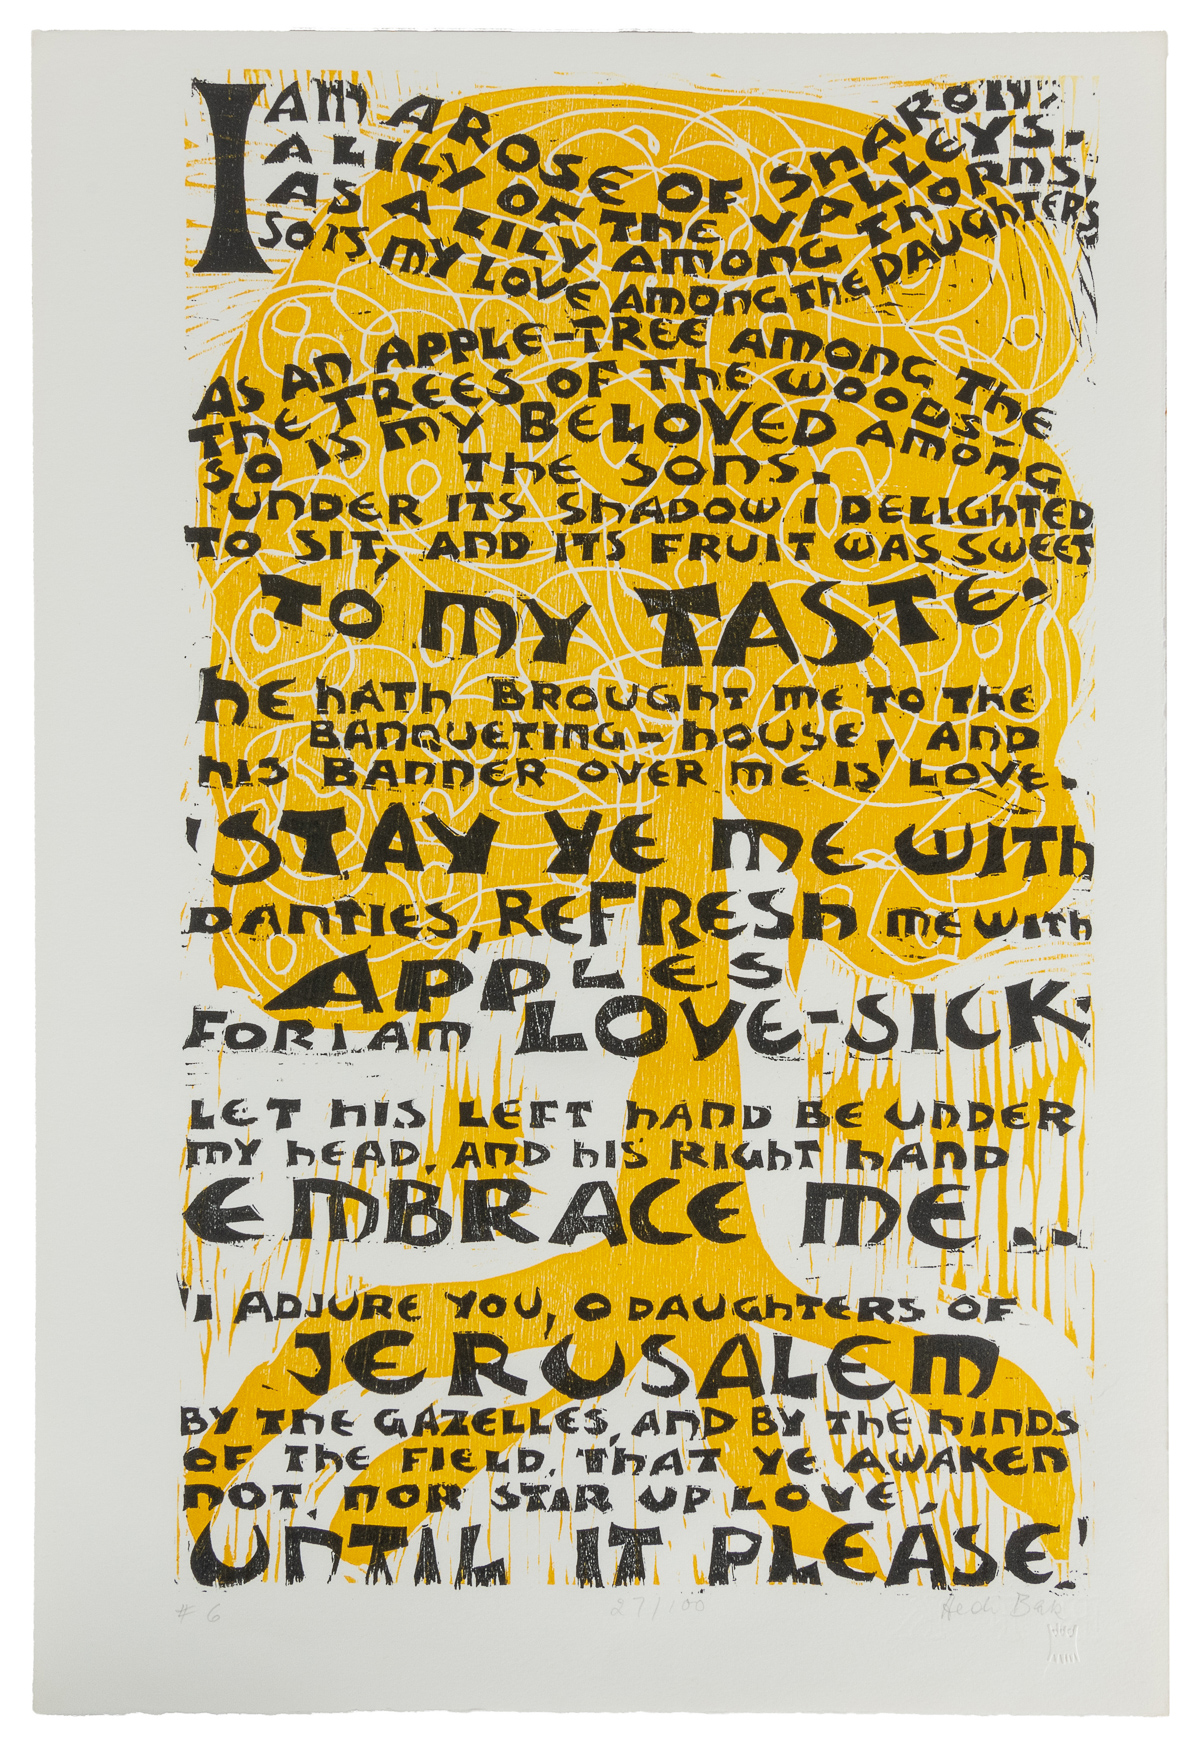 I AM A ROSE OF SHARON,
A LILY OF THE VALLEYS.
AS A LILY AMONG THORNS,
SO IS MY LOVE AMONG THE DAUGHTERS
AS AN APPLE-TREE AMONG THE
THE TREES OF THE WOODS,
SO IS MY BELOVED AMONG
THE SONS.
UNDER ITS SHADOW I DELIGHTED
TO SIT, AND ITS FRUIT WAS SWEET
TO MY TASTE.
HE HATH BROUGHT ME TO THE
BANQUETING-HOUSE, AND
HIS BANNER OVER ME IS LOVE.
'STAY YE ME WITH
DANTIES, REFRESH ME WITH
APPLES
FOR I AM LOVE-SICK'
LET HIS LEFT HAND BE UNDER
MY HEAD, AND HIS RIGHT HAND
EMBRACE ME...
'I ADJURE YOU, O DAUGHTERS OF
JERUSALEM
BY THE GAZELLES, AND BY THE HINDS
OF THE FIELD, THAT YE AWAKEN
NOT, NOR STIR UP LOVE,
UNTIL IT PLEASE.'
# 6 27/100 Hedi Bak